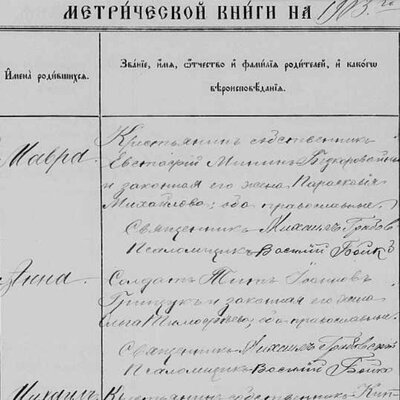 МЕТРИ́ЧЕСКОЙ КНИ́ГИ НА 1903 го
И́мена роди́вшихся.
Зва́нїе, и́мя, ѻ҆́тчество и҆ фами́лїя роди́телей, и҆ како́гѡ
вѣроисповѣ́данїя.
Мавра.
Крестьянинъ собственникъ
Евстафій Мининъ
и законная его жена Параскевія
Михайлова, оба православные.
Священникъ Михаилъ
Псаломщикъ Василій Бойко
Анна.
Солдатъ Титъ
Грищукъ и законная его жена
Тимофеева, оба православные.
Священникъ Михаилъ
Псаломщикъ Василій Бойко
Михаилъ
Крестьянинъ собственникъ